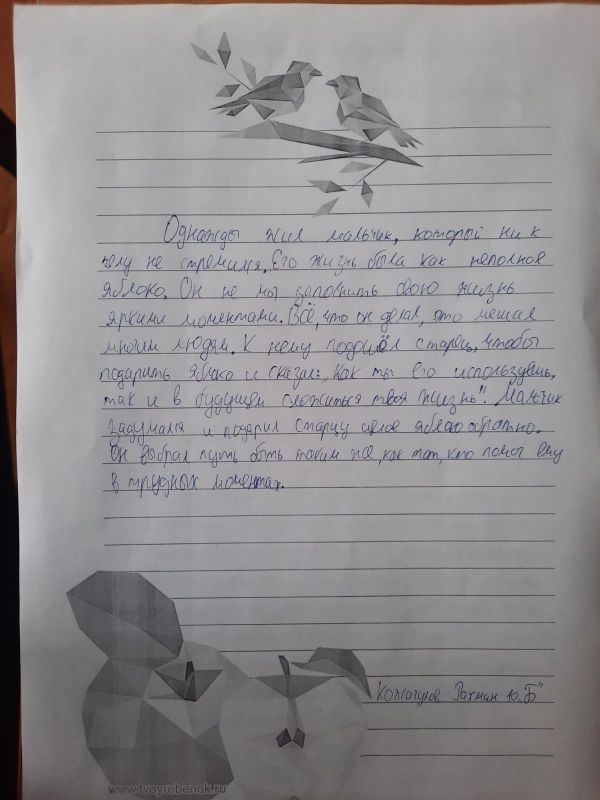 Однажды жил мальчик, который ни к
чему не стремился. Его жизнь была как неполное
яблоко. Он не мы заполнить свою жизнь
яркими моментами. Всё, что он делал, это мешал
многим людям. К нему подошёл старец, чтобы
подарить яблоко и сказал: „Как ты его используешь,
так и в будущем сложиться твоя жизнь". Мальчик
задумался и подарил старцу целое яблоко обратно.
Он выбрал путь быть таким же, как тот, кто помог ему
в трудных моментах.
Рахман 10 „Б"
www.tvoyrebenok.ru